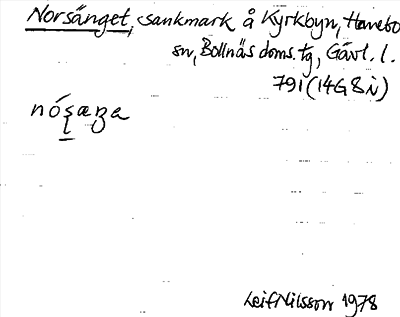 Norsänget, sankmark å Kyrkbyn, Hanebo
sn, Bollnäs doms. tg, Gävl. l.
791 (14G8i)
Leif Nilsson 1978